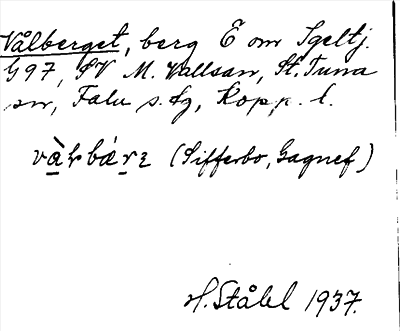 Vålberget, berg E om Igeltj.
G97, SV M. Vallsan, St. Tuna
sn, Falu s. fg, Kopp. l.
(Sifferbo, Gagnef)
H. Ståhl 1937.